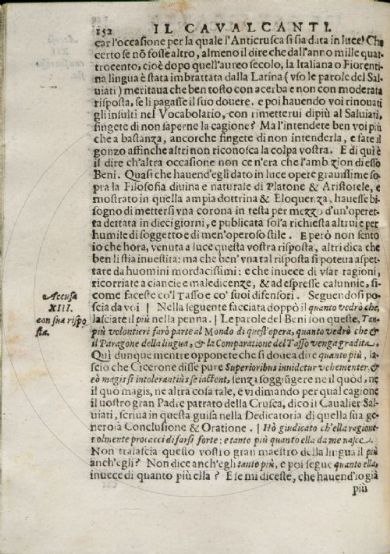 152 IL CAVALCANTI.
car l'occasione per la quale l'Anticrusca si sia data in luce! Che
certo se nō fosse altro, almeno il dire che dall'anno mille quat
trocento, cioè dopo quell'aureo secolo, la Italiana o Fiorenti
na lingua è stata imbrattata dalla Latina (vso le parole del Sal
uiati) meritaua che ben tosto con acerba e non con moderata
risposta, se li pagasse il suo douere. e poi hauendo voi rinouati
gli insulti nel Vocabolario, con rimetterui dipiù al Saluiati,
fingete di non saperne la cagione? Ma l'intendete ben voi più
che a bastanza, ancorche fingete di non intenderla, e fate il
gonzo affinche altri non riconosca la colpa vostra. E di quì è
il dire ch'altra occasione non ce n'era che l'ambizion di esso
Beni. Quasi che hauend'egli dato in luce opere grauissime so-
pra la Filosofia diuina e naturale di Platone & Aristotele, e
mostrato in quella ampia dottrina & Eloquenza, hauesse bi-
sogno di mettersi vna corona in testa per mezzo d'un'operet-
ta dettata in dieci giorni, e publicata sol'a richiesta altrui e per
humile di soggetto e di men'oneroso stile. E però non sento
io che hora, venuta a luce questa vostra risposta, altri dica che
ben li stia inuestita: ma che ben'vna tal risposta si poteua aspet-
tare da huomini mordacissimi: e che inuece di vsar ragioni,
ricorriate a ciancie e maledicenze, & ad espresse calunnie, si-
come faceste col Tasso e co' suoi difensori. Seguendosi po
Accusa
XIII.
con sua rispo
sta.
scia da voi | Nella seguente facciata doppò il quanto vedrò che,
lasciate il più nella penna. | Le parole del Beni son queste, Tan-
più volentieri farò parte al Mondo di quest'opera, quanto vedrò che &
il Paragone della lingua, & la Comparatione del Tasso venga gradita.
Quì dunque mentre opponete che si douea dire quanto più, la-
scio che Cicerone disse pure Superioribus inuidetur vehementer, &
eò magis si intolerantiùs se iactent, senza soggiugnere nel quod, nè
il quo magis, ne altra cosa tale, e vi dimando per qual cagione
il vostro gran Padre e patrato della Crusca, dico il Caualier Sal-
uiati, scriua in questa guisa nella Dedicatoria di quella sua ge-
nero a Conclusione & Oratione. | Hò giudicato ch'ella ragione-
uolmente procacci di farsi forte: e tanto più quanto ella da me nasce.
Non tralascia questo vostro gran maestro della lingua il più
anch'egli? Non dice anch'egli tanto più, e poi segue quanto ella,
inuece di quanto più ella? E se mi diceste, che hauend'io già
più